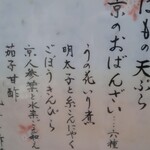 はもの天ぷら
京のおばんざい 六種
うの花いり煮
明太子と糸こんにゃく
ごぼうきんぴら
京人参葉と水菜
茄子甘酢